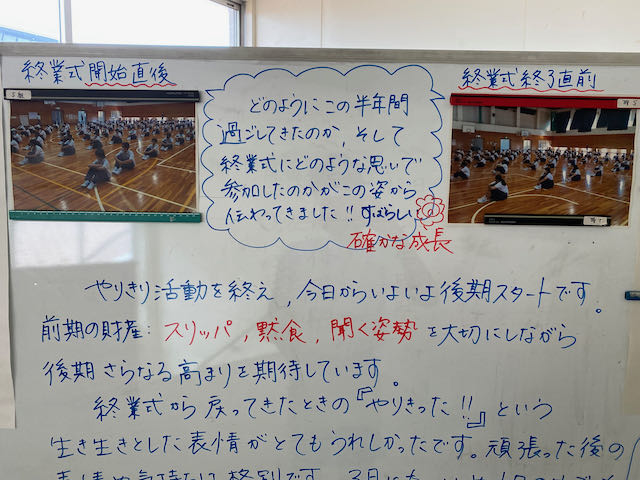 終業式開始直後
終業式終了直前
どのようにこの半年間
過ごしてきたのか、そして
終業式にどのような思いで
参加したのかがこの姿から
伝わってきました!!すばらしい
確かな成長
やりきり活動を終え、今日からいよいよ後期スタートです。
前期の財産:スリッパ,黙食,聞く姿勢を大切にしながら
後期さらなる高まりを期待しています。
終業式から戻ってきたときの『やりきった!!』という
生き生きとした表情がとてもうれしかったです。頑張った後の